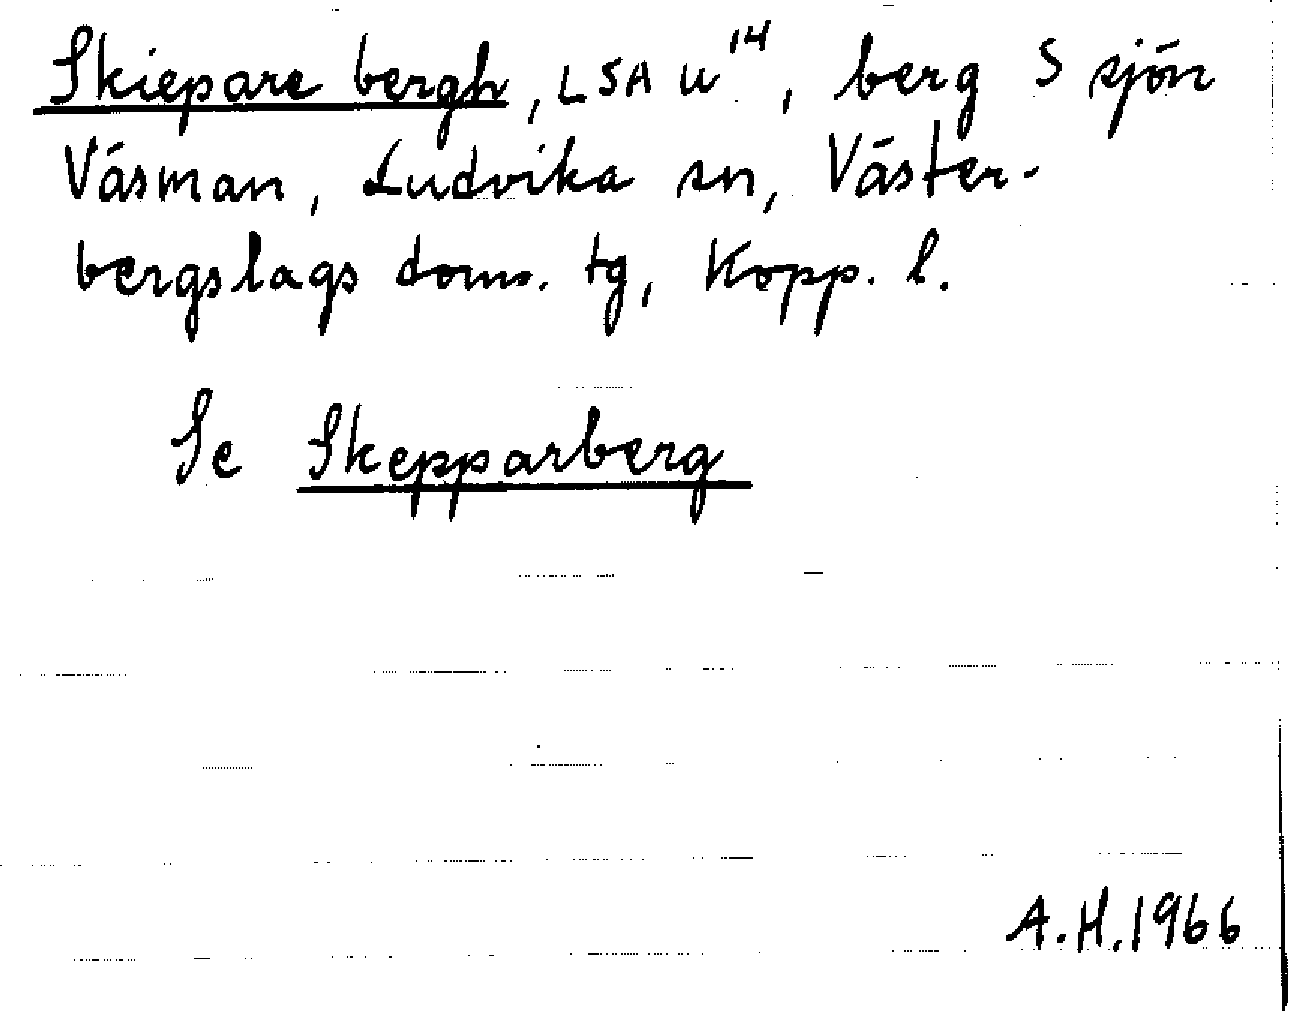 Skiepare bergh, LSA U¹⁴, berg S sjön
Väsman, Ludvika sn, Väster-
bergslags doms. tg, Kopp. l.
Se Skepparberg
A.H.1966